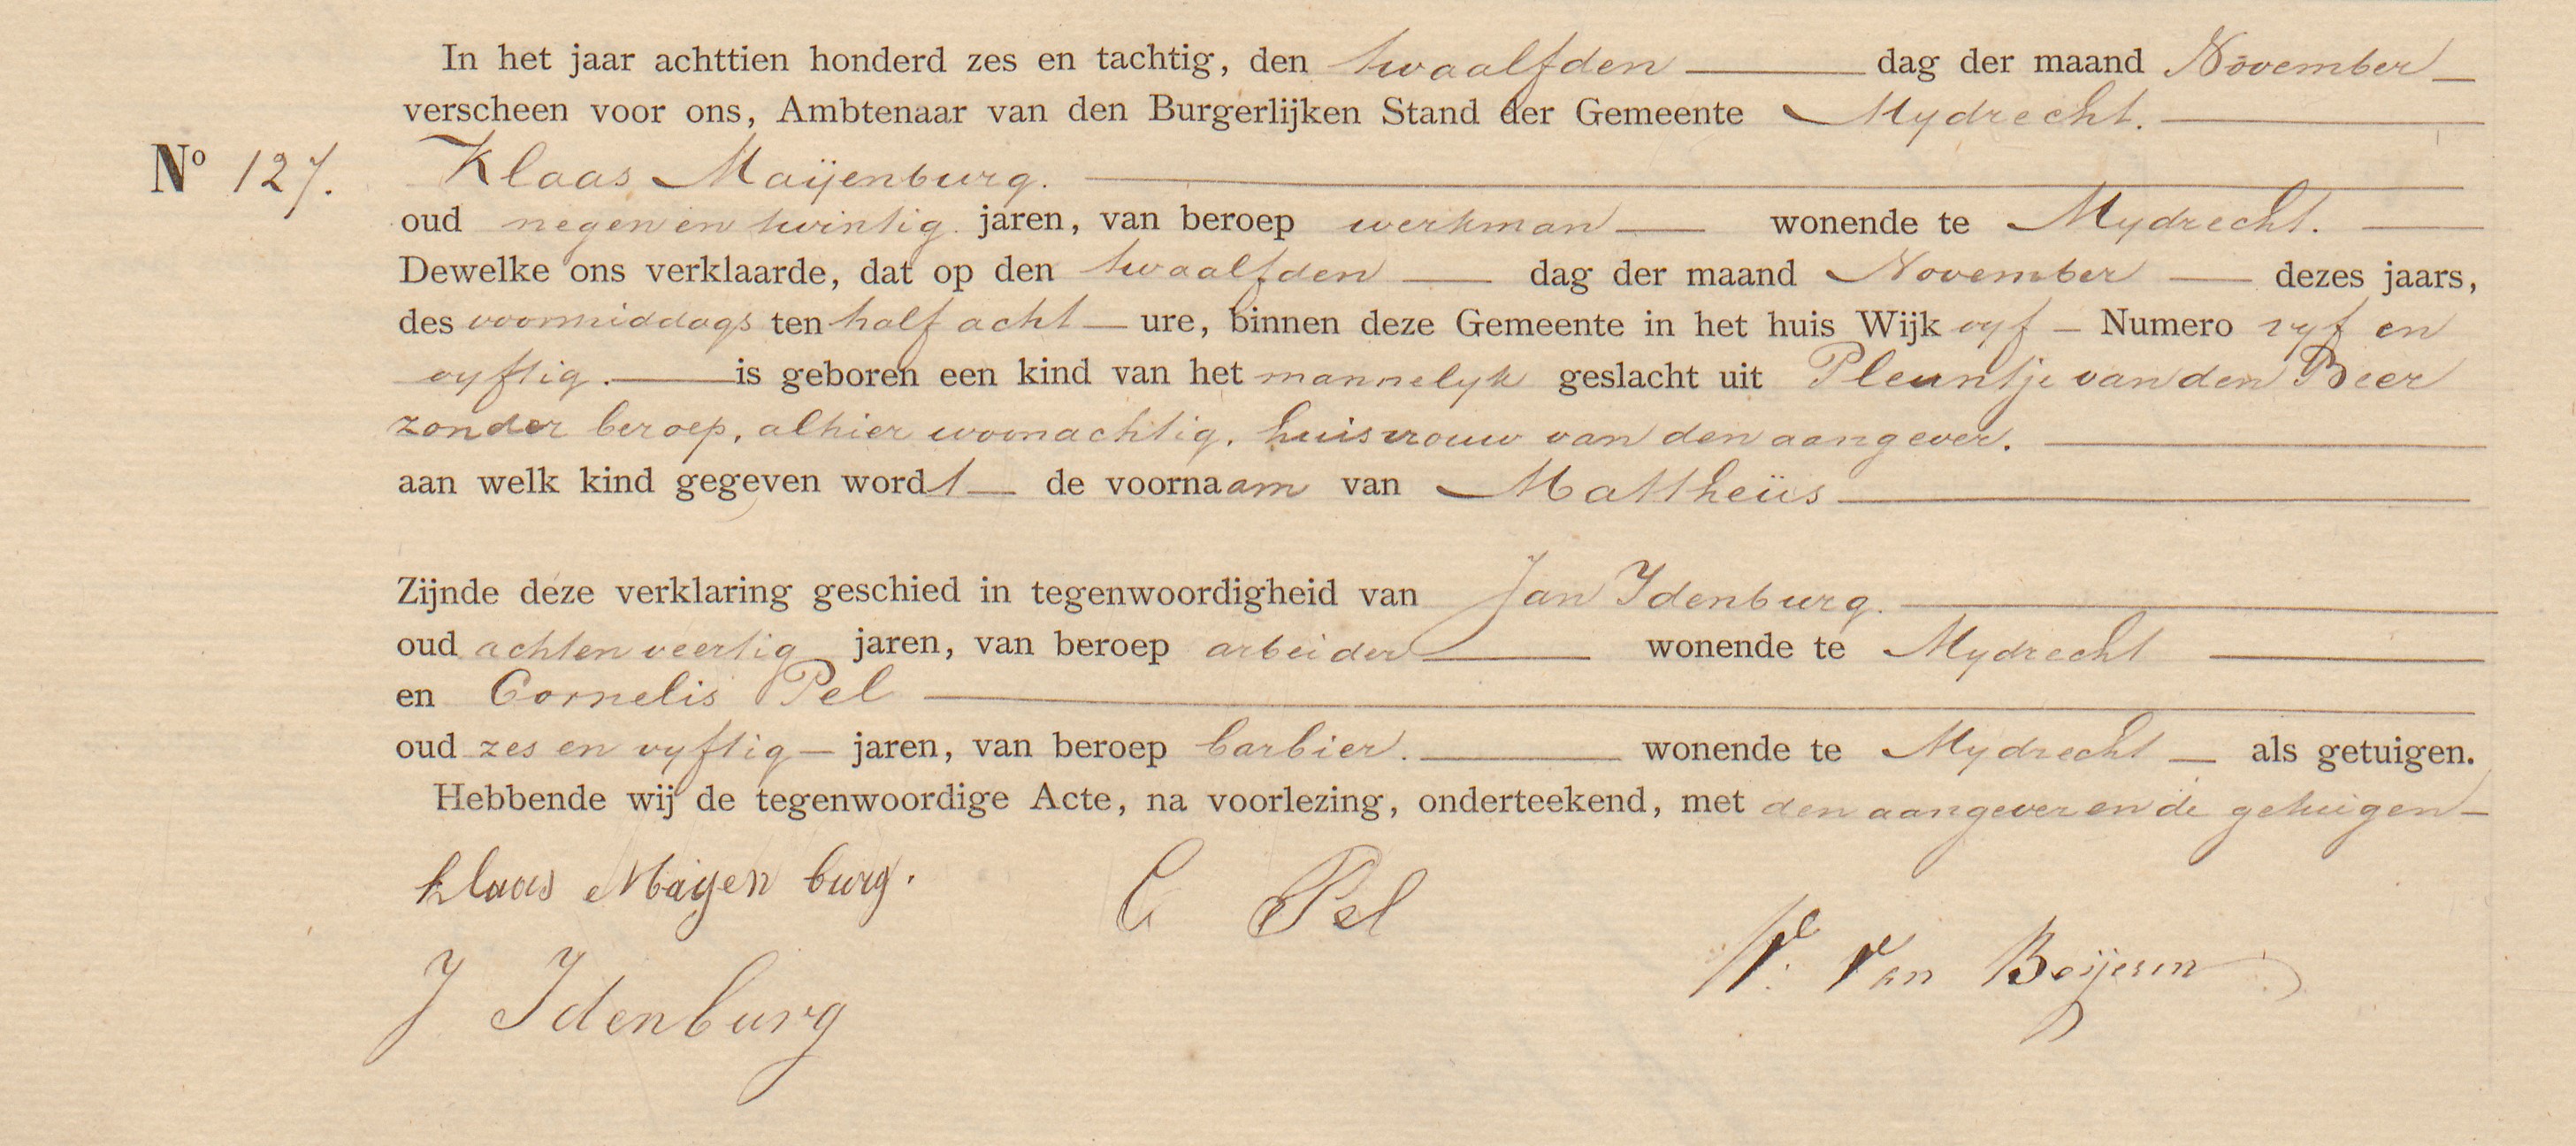 In het jaar achttien honderd zes en tachtig, den twaalfden dag der maand November
verscheen voor ons, Ambtenaar van den Burgerlijken Stand der Gemeente Mydrecht.
No 127. Klaas Maijenburg.
oud negen en twintig jaren, van beroep werkman wonende te Mydrecht.
Dewelke ons verklaarde, dat op den twaalfden dag der maand November dezes jaars,
des voormiddags ten half acht ure, binnen deze Gemeente in het huis Wijk vyf Numero vyf en
vyftig. is geboren een kind van het mannelyk geslacht uit Pleuntje van den Beer
zonder beroep, alhier woonachtig, huisvrouw van den aangever.
aan welk kind gegeven wordt de voornaam van Mattheüs
Zijnde deze verklaring geschied in tegenwoordigheid van Jan Idenburg.
oud achten veertig jaren, van beroep arbeider wonende te Mydrecht
en Cornelis Pel
oud zes en vyftig jaren, van beroep barbier. wonende te Mydrecht als getuigen.
Hebbende wij de tegenwoordige Acte, na voorlezing, onderteekend, met den aangever en de getuigen
Klaas Maijenburg. C Pel
J Idenburg Van Beijeren